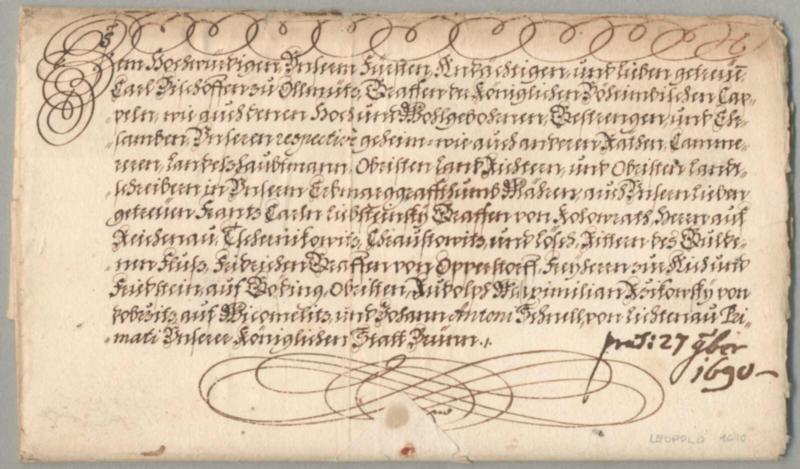 Dem Hochwürdigen, Unserm Fürsten, Andächtigen, und lieben getreuen
Carl Bischoffen zu Ollmütz, Graffen der Königlichen Böheimbischen Cap-
-peln, wie auch denen Hoch und Wohlgebohrnen, Gestrengen, und Ehr-
-samben Unseren respectivè geheim- wie auch anderen Räthen, Camme-
-reren, Landtshaubtmann, Obristen Land Richtern, und Obristen Landt-
-schreibern in Unserm Erbmarggraffthumb Mähren, auch Unsern lieben
getreuen Frantz Carln Liebsteinsky Graffen von Kolowrath, Herrn auf
Reichenau, Tschernikowitz, und Ritttern des Gulde-
-nen Fluß, Fridrichen Graffen von Opperstorff, Freyherrn zu Aich und
Fridstein, auf Obristen, Rudolph Maximilian von
auf und Johann Antoni Schnell, von Lichtenau Pri-
-mati Unserer Königlichen Statt Brünn.
27 9ber
1690
LEOPOLD 1690